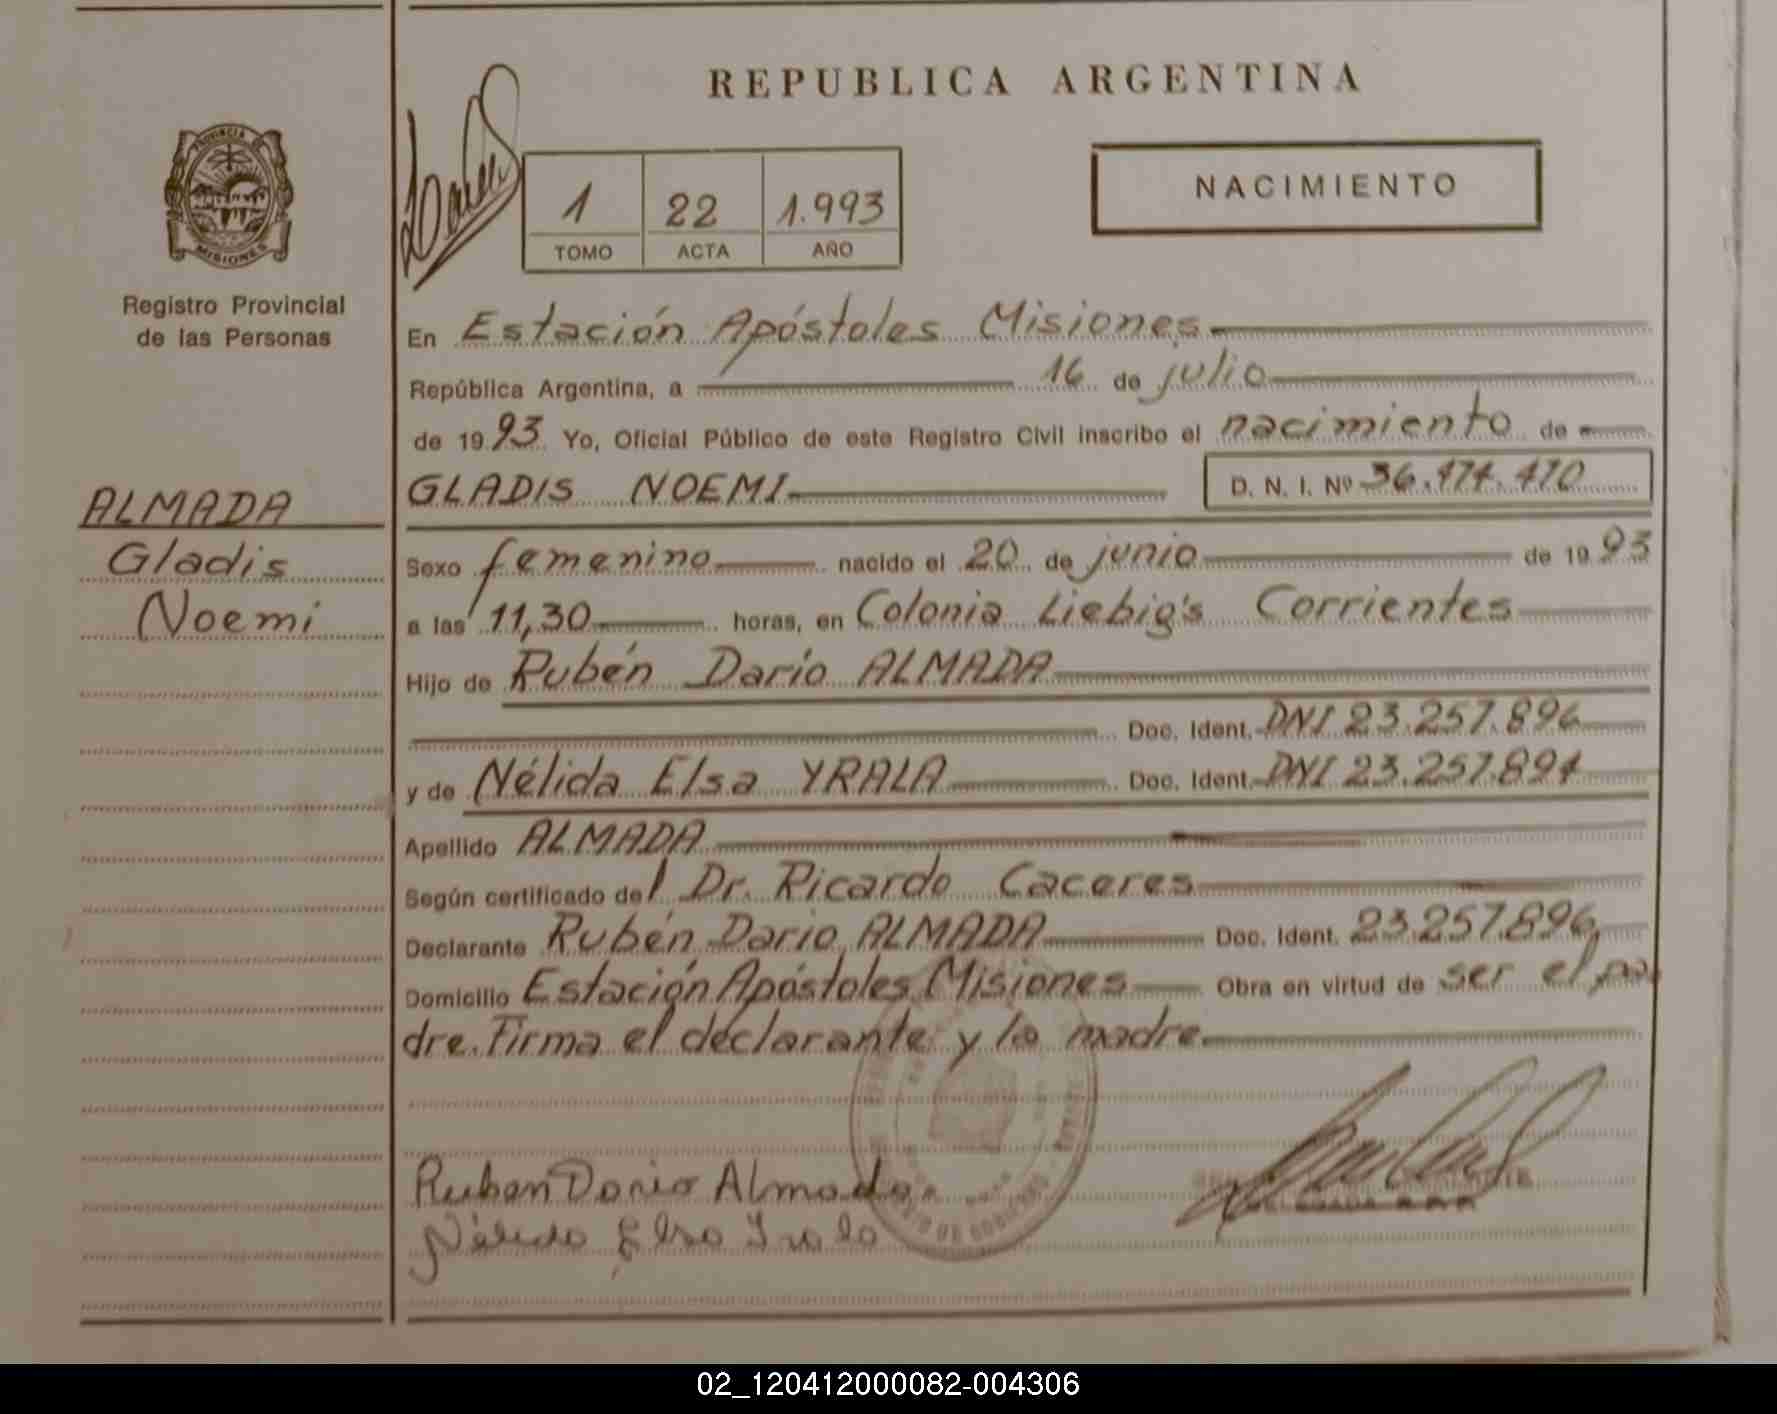 REPUBLICA ARGENTINA
PROVINCIA DE
MISIONES
Registro Provincial
de las Personas
1 22 1.993
TOMO ACTA AÑO
NACIMIENTO
ALMADA
Gladis
Noemi
En Estación Apóstoles Misiones
República Argentina, a 16 de julio
de 19 93 Yo, Oficial Público de este Registro Civil inscribo el nacimiento de
GLADIS NOEMI D. N. I. Nº
Sexo femenino nacido el 20 de junio de 19 93
a las 11,30 horas, en Colonia Liebig's Corrientes
Hijo de Rubén Darío ALMADA
Doc. Ident. DNI 23.257.896
y de Nélida Elsa YRALA Doc. Ident. DNI 23.257.891
Apellido ALMADA
Según certificado del Dr. Ricardo Caceres
Declarante Rubén Darío ALMADA Doc. Ident. 23.257.896
Domicilio Estación Apóstoles Misiones Obra en virtud de ser el pa
dre. Firma el declarante y la madre
Ruben Dario Almada
Nélida Elsa Yrala
02_120412000082-004306